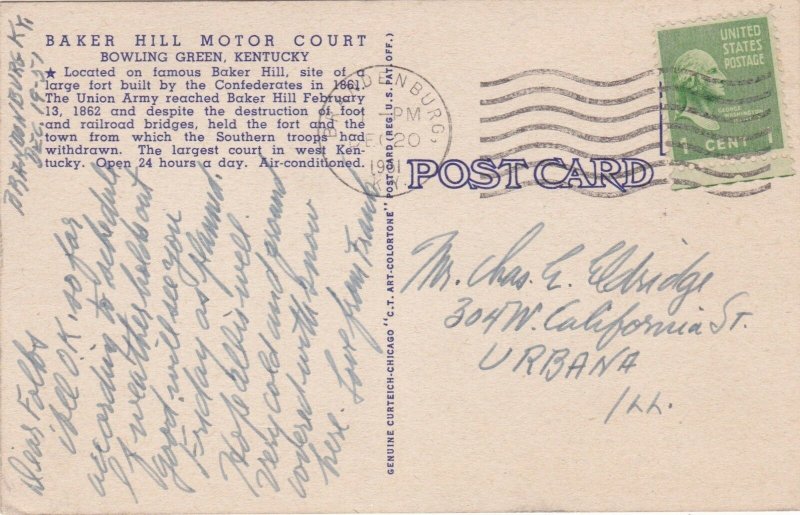 BAKER HILL MOTOR COURT
BOWLING GREEN, KENTUCKY
★ Located on famous Baker Hill, site of a
large fort built by the Confederates in 1861.
The Union Army reached Baker Hill February
13, 1862 and despite the destruction of foot
and railroad bridges, held the fort and the
town from which the Southern troops had
withdrawn. The largest court in west Ken-
tucky. Open 24 hours a day. Air-conditioned.
BRANDENBURG KY.
DEC. 19-51
Dear Folks
All O.K. so far
according to schedule
If weather holds out
good will see you
Friday as planned.
Hope all is well.
Very cold and ground
covered with snow
here. Love from Frank
GENUINE CURTEICH-CHICAGO "C.T. ART-COLORTONE" POST CARD (REG. U.S. PAT. OFF.)
BRANDENBURG,
PM
DEC 20
1951
KY.
POST CARD
UNITED
STATES
POSTAGE
GEORGE WASHINGTON
1 CENT 1
Mr. Chas. E. Eldridge
304 W. California St.
URBANA
ILL.